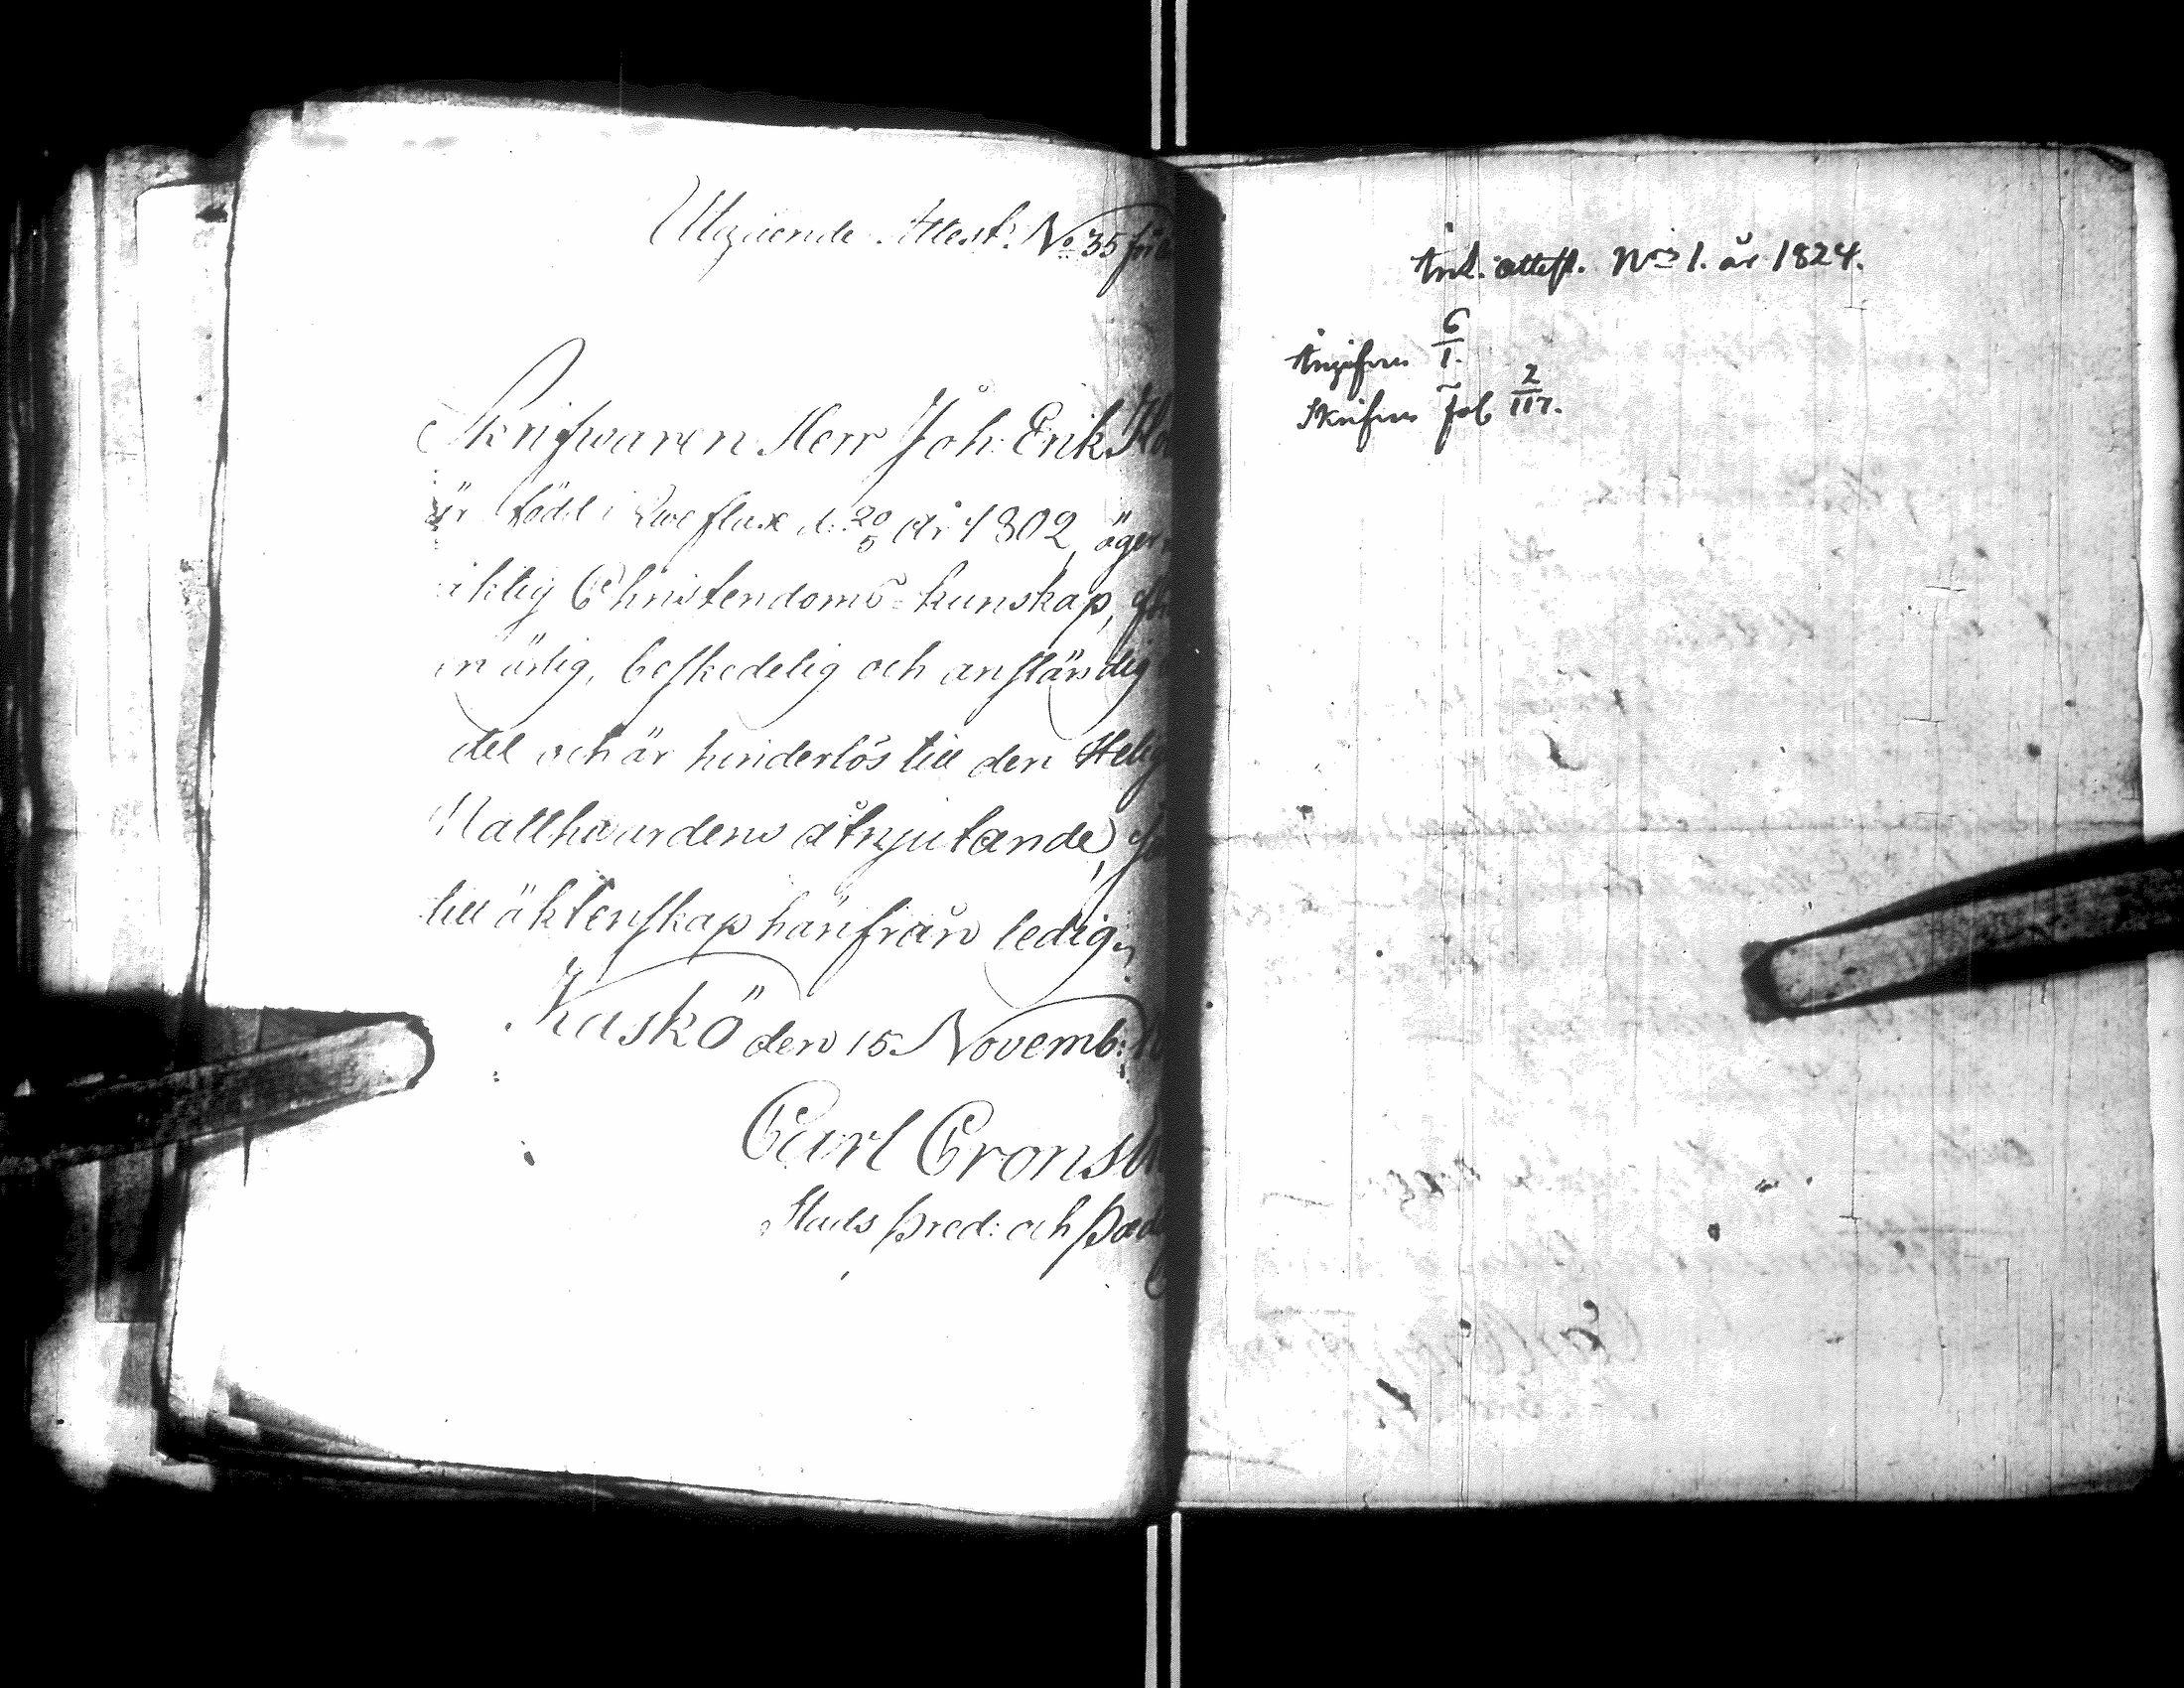 Utgående Attest: No 35 för
Skrifwaren Herr Joh: Erik
är född i d. 20/5 år 1802, äger
iktig Christendoms-kunskap,
en ärlig, beskedelig och anständig
del och är hinderlös till den Helig
Natthwardens åtnjutande,
till äktenskap härifrån ledig,
Kaskö den 15 Novemb:
Carl Cronst
Stads Pred: och Pæd
Ank. attest. No 1. år 1824.
Angifven 6/1.
Skrifven Fol 2/117.